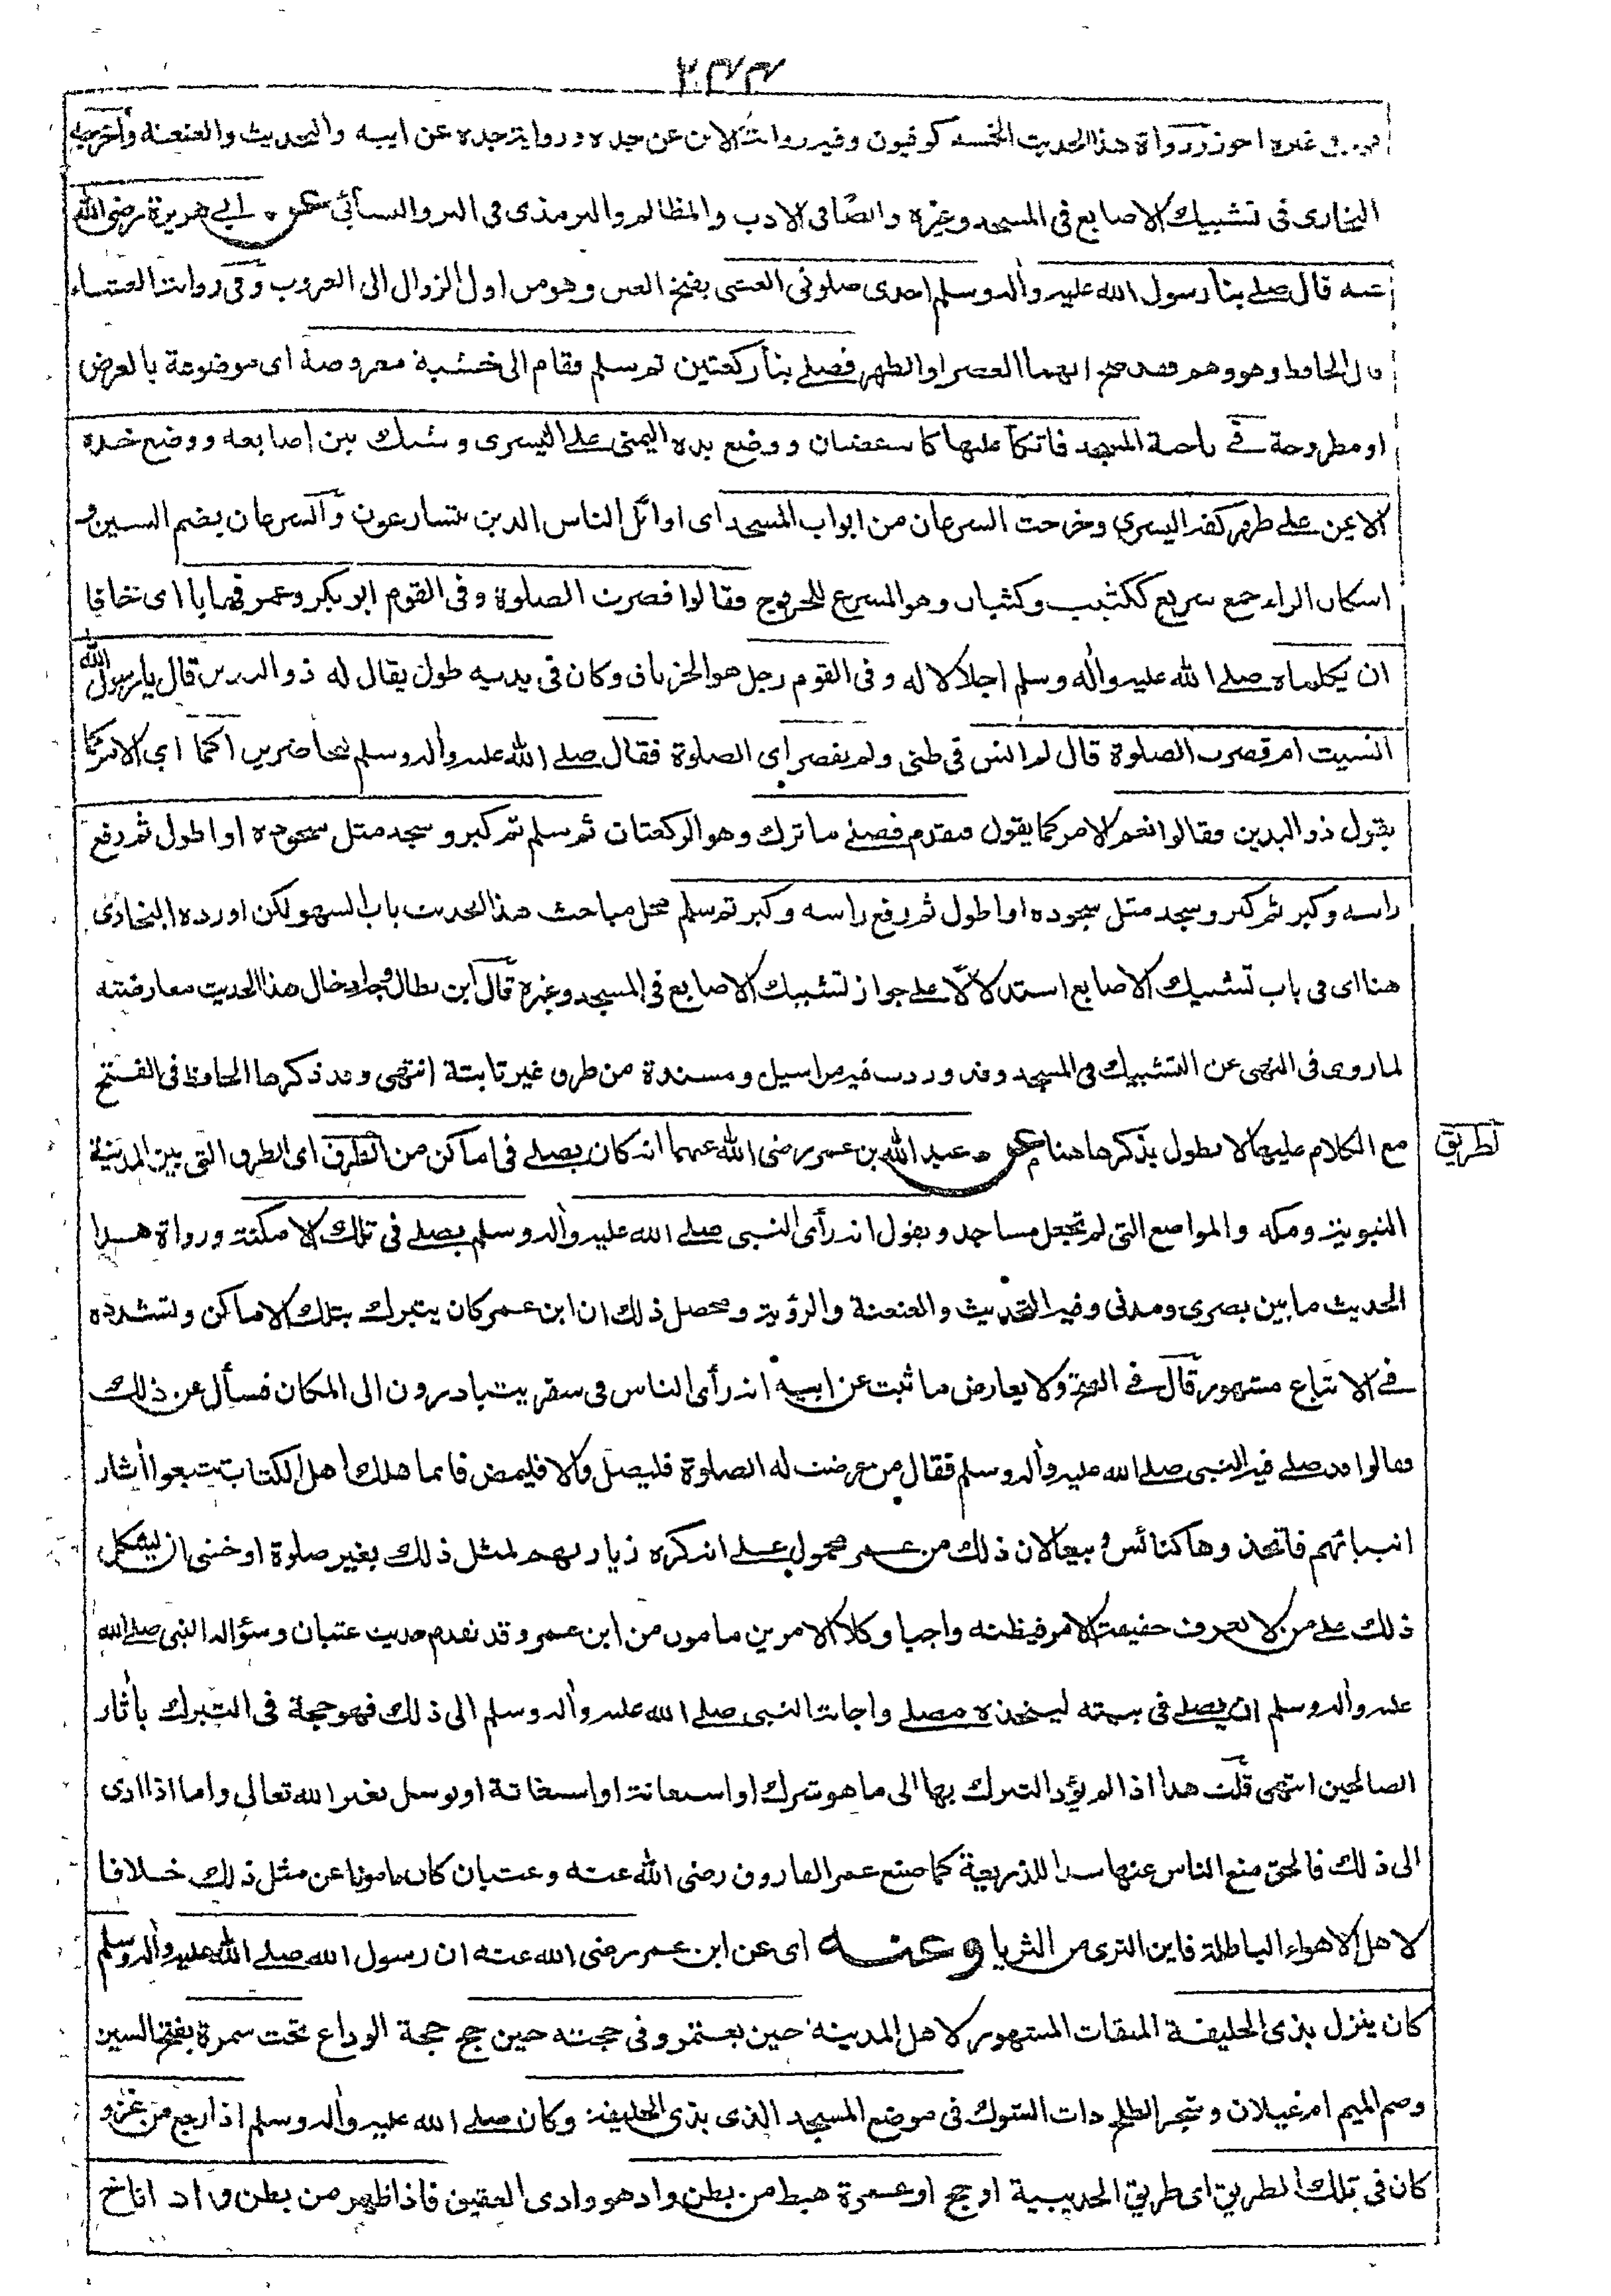 ٢٣٣
غيره احوز ورواة هذا الحديث الخمسه كوفيون وفيه رواية الابن عن جده ورواية جده عن ابيه والتحديث والعنعنة واخرجه
البخارى فى تشبيك الاصابع فى المسجد وغيره وايضا فى الادب والمظالم والترمذى فى البر والنسائى عن ابي هريرة رضى الله
عنه قال صلى بنا رسول الله عليه واله وسلم احدى صلوتى العشى بفتح العين وهو من اول الزوال الى الغروب وفى رواية العشاء
قال الحافظ وهو وهم فقد صح انهما العصر او الظهر فصلى بنا ركعتين ثم سلم فقام الى خشبة معروضة اى موضوعة بالعرض
او مطروحة فى ناحية المسجد فاتكأ عليها كانه غضبان ووضع يده اليمنى على اليسرى وشبك بين اصابعه ووضع خده
الايمن على ظهر كفه اليسرى وخرجت السرعان من ابواب المسجد اى اوائل الناس الذين يتسارعون والسرعان بضم السين و
اسكان الراء جمع سريع ككثيب وكثبان وهو المسرع للخروج فقالوا قصرت الصلوة وفى القوم ابو بكر وعمر فهابا اى خافا
ان يكلماه صلى الله عليه واله وسلم اجلالا له وفى القوم رجل هو الخرباق وكان فى يديه طول يقال له ذو اليدين قال يا رسول الله
انسيت ام قصرت الصلوة قال لم انس فى ظنى ولم تقصر اى الصلوة فقال صلى الله عليه واله وسلم للحاضرين اكما اى الامر كما
يقول ذو اليدين فقالوا نعم الامر كما يقول فتقدم فصلى ما ترك وهو الركعتان ثم سلم ثم كبر وسجد مثل سجوده او اطول ثم رفع
راسه وكبر ثم كبر وسجد مثل سجوده او اطول ثم رفع راسه وكبر ثم سلم محل مباحث هذا الحديث باب السهو لكن اورده البخارى
هنا اى فى باب تشبيك الاصابع استدلالا على جواز تشبيك الاصابع فى المسجد وغيره قال ابن بطال وجه ادخال هذا الحديث معارضته
لما روى فى النهى عن التشبيك فى المسجد وقد وردت فيه مراسيل ومسندة من طرق غير ثابتة انتهى وقد ذكرها الحافظ فى الفتح
مع الكلام عليها لا نطول بذكرها هنا عن عبد الله بن عمر رضى الله عنهما انه كان يصلى فى اماكن من الطرق اى الطرق التى بين المدينة
لطريق
النبوية ومكه والمواضع التى لم تجعل مساجد ويقول انه رأى النبى صلى الله عليه واله وسلم يصلى فى تلك الامكنة ورواة هذا
الحديث ما بين بصرى ومدنى وفيه التحديث والعنعنة والرؤية ومحصل ذلك ان ابن عمر كان يتبرك بتلك الاماكن وتشدده
فى الاتباع مشهور قال فى الفتح ولا يعارض ما ثبت عن ابيه انه رأى الناس فى سفر يتبادرون الى المكان فسأل عن ذلك
فقالوا قد صلى فيه النبى صلى الله عليه واله وسلم فقال من عرضت له الصلوة فليصل والا فليمض فانما هلك اهل الكتاب تتبعوا اثار
انبيائهم فاتخذوها كنائس وبيعا لان ذلك من عمر محمول على انه كره زيارتهم لمثل ذلك بغير صلوة او خشى ان يشكل
ذلك على من لا يعرف حقيقة الامر فيظنه واجبا وكلا الامرين مامون من ابن عمر وقد تقدم حديث عتبان وسؤاله النبى صلى الله
عليه واله وسلم ان يصلى فى بيته ليتخذه مصلى واجابة النبى صلى الله عليه واله وسلم الى ذلك فهو حجة فى التبرك بأثار
الصالحين انتهى قلت هذا اذا لم يؤد التبرك بها الى ما هو شرك او استعانة او استغاثة او توسل بغير الله تعالى واما اذا ادى
الى ذلك فالحق منع الناس عنها سدا للذريعة كما صنع عمر الفاروق رضى الله عنه وعتبان كان مامونا عن مثل ذلك خلافا
لاهل الاهواء الباطلة فاين الثرى من الثريا وعنه اى عن ابن عمر رضى الله عنه ان رسول الله صلى الله عليه واله وسلم
كان ينزل بذى الحليفة الميقات المشهور لاهل المدينة حين يعتمر وفى حجته حين حج حجة الوداع تحت سمرة بفتح السين
وضم الميم ام غيلان وشجر الطلح ذات الشوك فى موضع المسجد الذى بذى الحليفة وكان صلى الله عليه واله وسلم اذا رجع من غزو
كان فى تلك الطريق اى طريق الحديبية او حج او عمرة هبط من بطن واد هو وادى العقيق فاذا ظهر من بطن واد اناخ